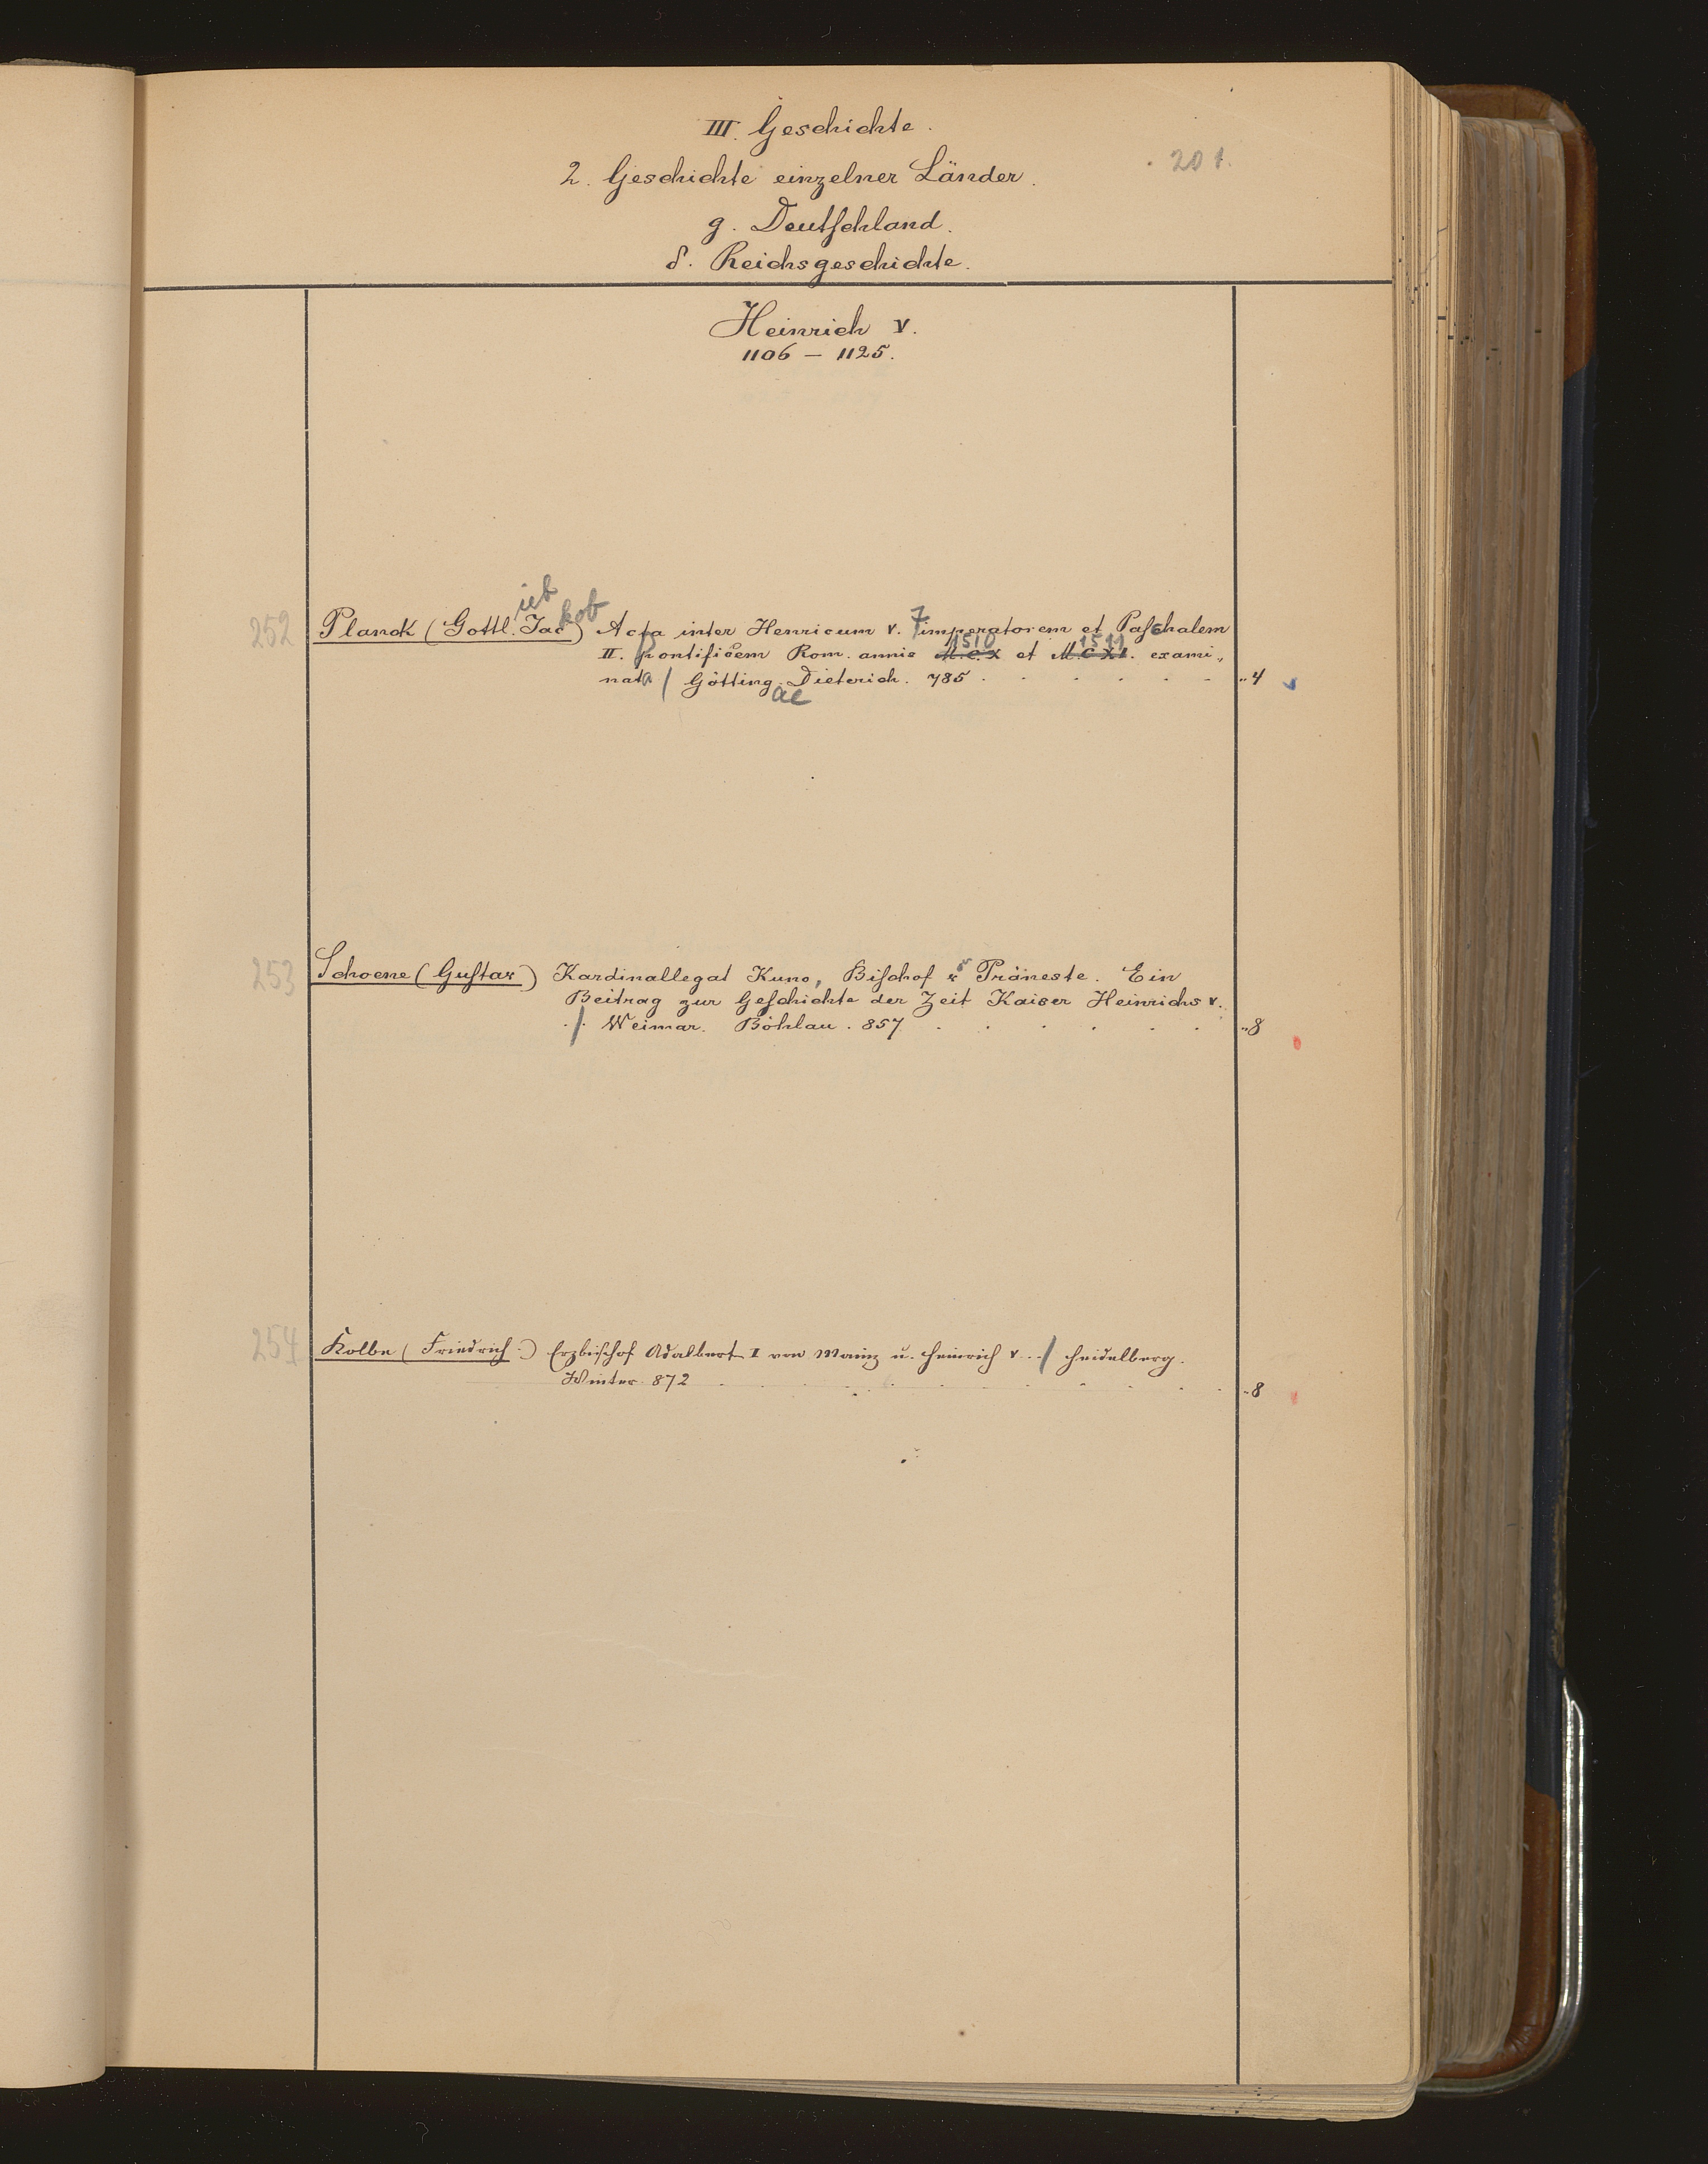 III. Geschichte.
2. Geschichte einzelner Länder.
201.
g. Deutschland.
δ. Reichsgeschichte.
Heinrich V.
1106 – 1125.
ieb kob
252 Planck (Gottl. Jac) Acta inter Henricum V. imperatorem et Paschalem
1510 1511
II. pontificem Rom. annis M.C.X et M.C.XI. exami„
nata / Götting. Dieterich. 785 . . . . . . „4
ae
253 Schoene (Gustav) Kardinallegat Kuno, Bischof v Präneste. Ein
Beitrag zur Geschichte der Zeit Kaiser Heinrichs V.
/ Weimar. Böhlau. 857 . . . . . . „8
254 Kolbe (Friedrich.) Erzbischof Adalbert I von Mainz u. Heinrich V. / Heidelberg.
Winter. 872 . . . . . . . . . „8